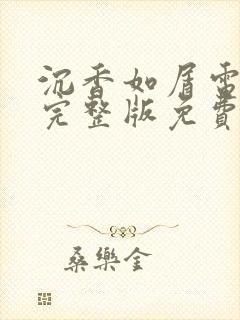 沉香如屑電
完整版免費
桑樂金